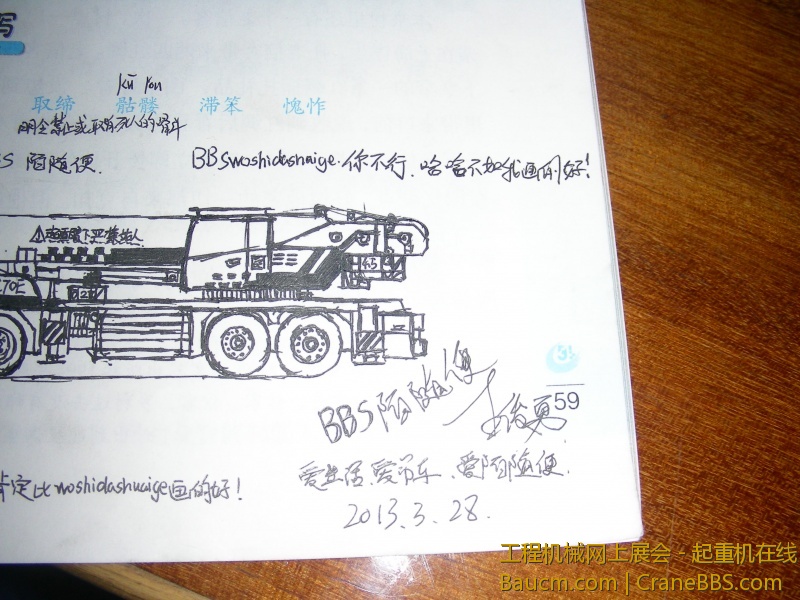 写
kū lóu
取缔 骷髅 滞笨 愧怍
明令禁止或取消 死人的骨头
BS 陌随便.
BBSwoshidashuaige.你不行.哈哈不如我画的好!
起重臂下严禁站人
70E
BBS陌随便
59
肯定比woshidashuaige画的好!
爱生活、爱吊车、爱陌随便.
2013.3.28.
工程机械网上展会 - 起重机在线
Baucm.com | CraneBBS.com